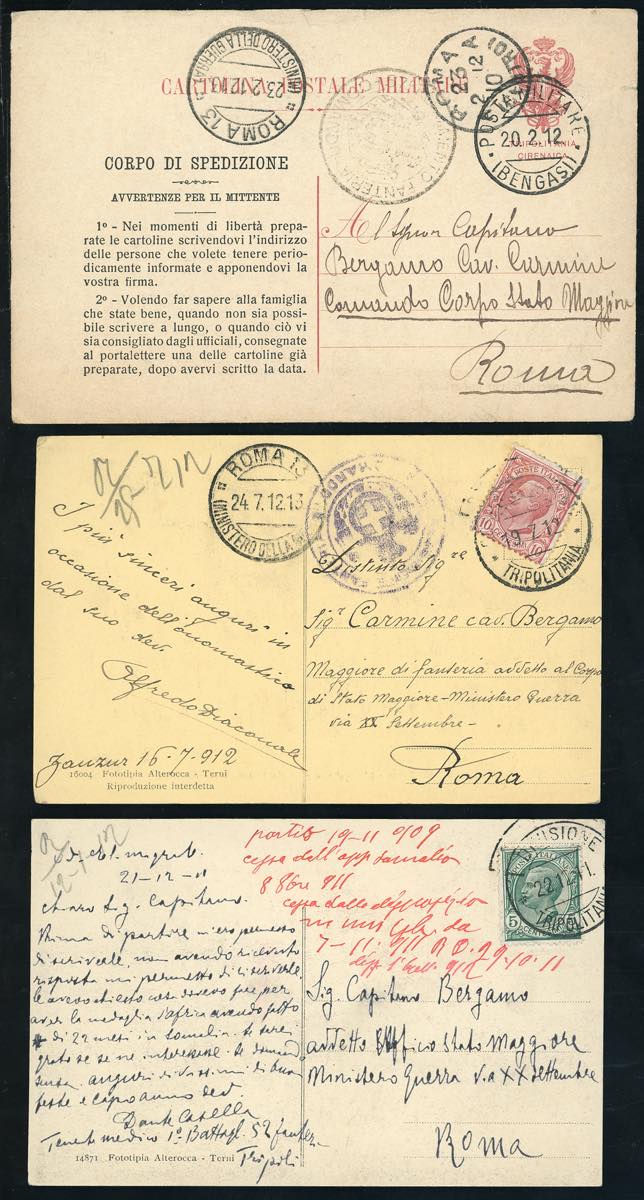 CARTOLINA POSTALE MILITARE
ROMA 13
23.2.12.10
(MINISTERO DELLA GUERRA)
ROMA
23
2 12
10
POSTA MILITARE
20.2.12
(BENGASI)
TRIPOLITANIA
CIRENAICA
FANTERIA
CORPO DI SPEDIZIONE
AVVERTENZE PER IL MITTENTE
1º - Nei momenti di libertà prepa-
rate le cartoline scrivendovi l'indirizzo
delle persone che volete tenere perio-
dicamente informate e apponendovi la
vostra firma.
2º - Volendo far sapere alla famiglia
che state bene, quando non sia possi-
bile scrivere a lungo, o quando ciò vi
sia consigliato dagli ufficiali, consegnate
al portalettere una delle cartoline già
preparate, dopo avervi scritto la data.
Al Signor Capitano
Bergamo Cav. Carmine
Comando Corpo Stato Maggiore
Roma
ROMA 13
24.7.12.13
(MINISTERO DELLA
POSTE ITALIANE
10
TRIPOLITANIA
I più sinceri auguri in
occasione dell'onomastico
dal suo dev.
Alfredo Diaconale
Zanzur 16-7-912
16004 Fototipia Alterocca - Terni
Riproduzione interdetta
Distinto Sigre
Sigr Carmine cav. Bergamo
Maggiore di fanteria addetto al Corpo
di Stato Maggiore - Ministero Guerra
via XX Settembre -
Roma
21-12-11
Sig. Capitano.
Prima di partire m'ero permesso
di scriverle, non avendo ricevuto
risposta mi permetto di riscriverle.
le avevo chiesto cosa dovevo fare per
aver la medaglia d'africa avendo fatto
di 22 mesi in Somalia. Le sarei
grato se se ne interessasse. Le domando
scusa. auguri di buone
feste e capo anno dev.
Dante Casella
Tenente medico 1º Battagl. 52 fanter.
Tripoli
14871 Fototipia Alterocca - Terni
partito 19-11 909
cessa dell'app Somalia
8 8bre 911
cessa dalla
da
7-11-911
DIVISIONE
POSTE ITALIANE
5
TRIPOLITANIA
Sig. Capitano Bergamo
addetto Ufficio Stato Maggiore
Ministero Guerra via XX settembre
Roma